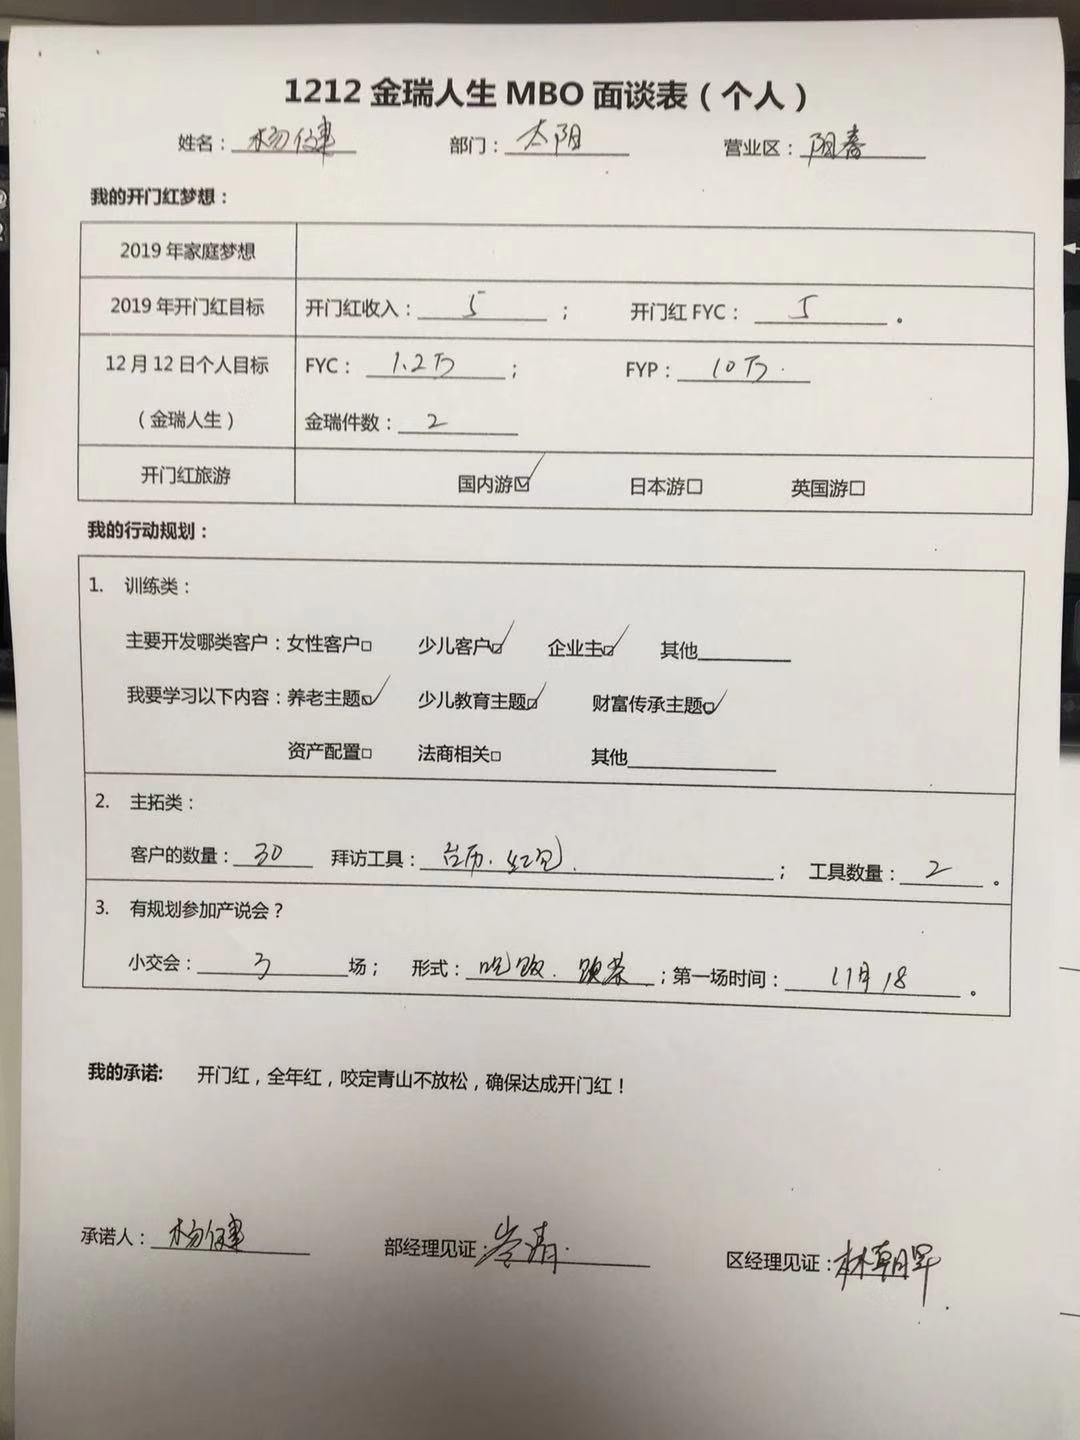 1212 金瑞人生 MBO 面谈表（个人）
姓名：杨健 部门：太阳 营业区：阳春
我的开门红梦想：
2019 年家庭梦想
2019 年开门红目标 开门红收入：5； 开门红 FYC：5。
12 月 12 日个人目标 FYC：1.2万； FYP：10万.
（金瑞人生） 金瑞件数：2
开门红旅游 国内游☑ 日本游□ 英国游□
我的行动规划：
1. 训练类：
主要开发哪类客户：女性客户□ 少儿客户☑ 企业主☑ 其他
我要学习以下内容：养老主题☑ 少儿教育主题☑ 财富传承主题☑
资产配置□ 法商相关□ 其他
2. 主拓类：
客户的数量：30 拜访工具：台历. 红包.； 工具数量：2。
3. 有规划参加产说会？
小交会：3场； 形式：吃饭. 喝茶；第一场时间：11月18。
我的承诺: 开门红，全年红，咬定青山不放松，确保达成开门红！
承诺人：杨健 部经理见证：岑清. 区经理见证：林朝晖.